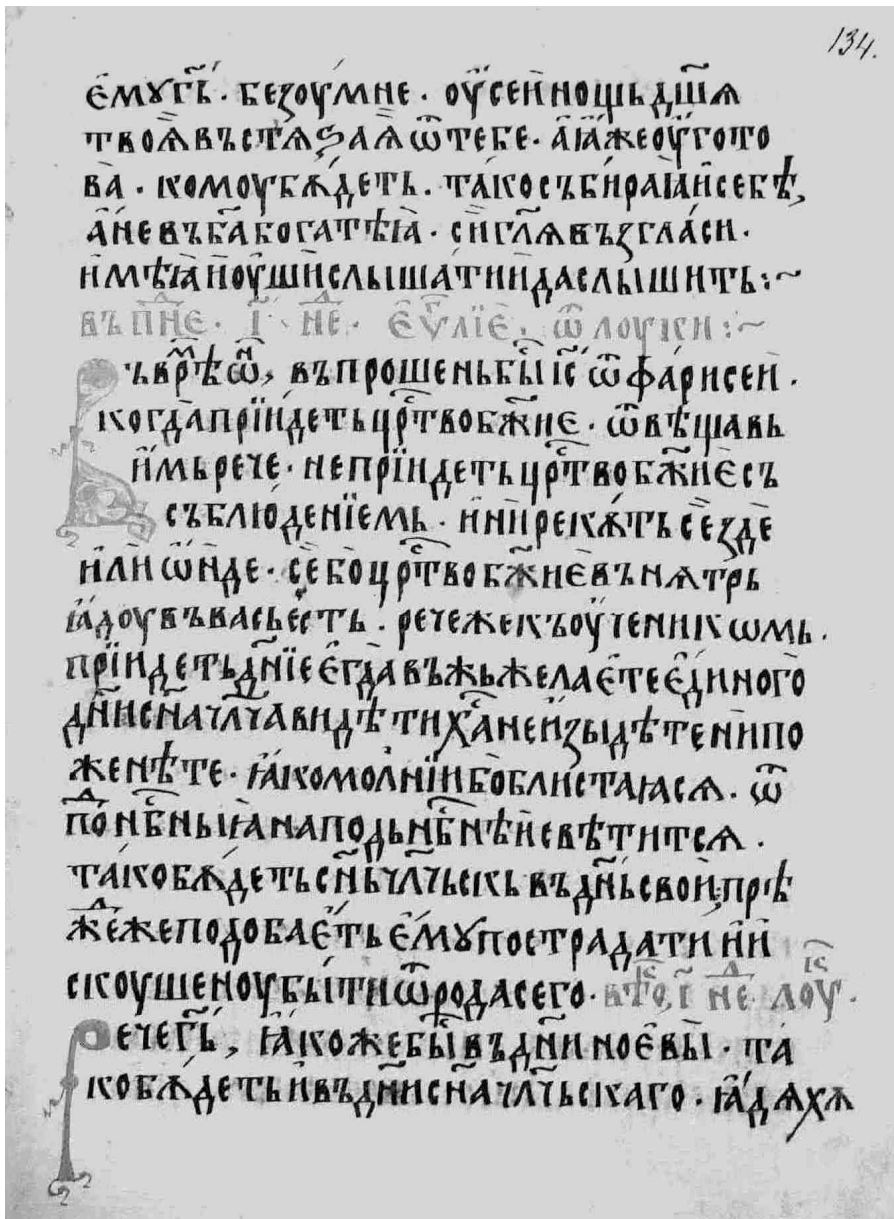 134.
є҆мꙋ гь҃ · безоумне · оу҆ сеи нощь дш҃ѧ
твоѧ въстѧѕаѧ ѿ тебе · а ꙗ҆же оу҆гото
ва · комоу бѫдеть · тако събираꙗи себѣ,
а не въ ба҃ богатѣꙗ · си гл҃ѧ възгласи ·
имѣꙗи оу҆ши слышати и да слышить :~
въ пнⷣе · і҃ · неⷣ · єѵⷢлїє · ѿ лоукы :~
Въ врⷨѣ ѡⷩ, въпрошень бы іс҃ ѿ фарисеи ·
когда прїидеть црⷭтво бж҃ие · ѿвѣщавь
имь рече · не прїидеть црⷭтво бж҃иє съ
съблюденїемь · ни рекѫть се зде
или ѡнде · се бо црⷭтво бж҃иє вънѫтрь
ꙗдоу въ вась есть · рече же къ оу҆ченикѡмь ·
прїидеть дн҃їе єгда въжьжелаєте єдиного
дн҃и сн҃а чл҃ча видѣти хⷭа не изыдѣте ни по
женѣте · ꙗко молнїи бо облистаꙗсѧ · ѿ
поⷣ нбⷭныꙗ на подьнбⷭнѣи свѣтитсѧ ·
тако бѫдеть сн҃ь чл҃чьскь въ дн҃ь свои, прѣ
жеⷣ же подобаєть ємꙋ пострадати и и
скоушеноу быти ѿ рода сего · вто, і҃ неⷣ лоуⷦ ·
Рече гь҃, ꙗкоже бы въ дн҃и ноєвы · та
ко бѫдеть и въ дн҃и сн҃а чл҃чьскаго · ꙗдѧхѫ